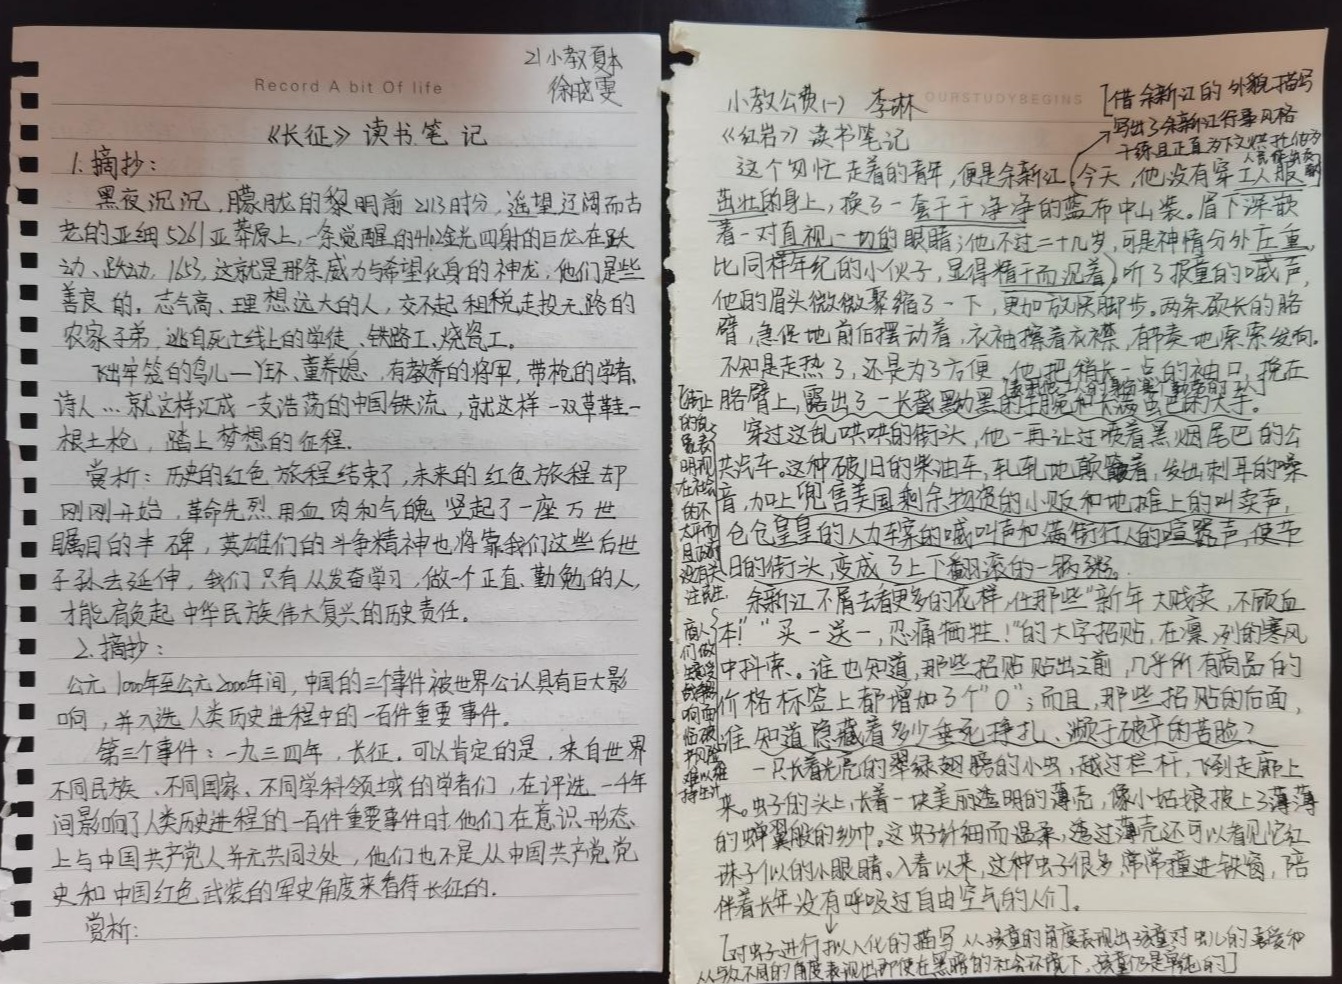 21小教夏本
徐晓雯
Record A bit Of life
《长征》读书笔记
1.摘抄：
黑夜沉沉，朦胧的黎明前2113时分，遥望辽阔而古
老的亚细5261亚莽原上，一条觉醒的4102金光四射的巨龙在跃
动、跃动，1653，这就是那条威力与希望化身的神龙，他们是些
善良的，志气高、理想远大的人，交不起租税走投无路的
农家子弟，逃自死亡线上的学徒、铁路工、烧瓷工。
飞出牢笼的鸟儿—丫环、童养媳，有教养的将军，带枪的学者、
诗人…就这样汇成一支浩荡的中国铁流，就这样一双草鞋一
根土枪，踏上梦想的征程。
赏析：历史的红色旅程结束了，未来的红色旅程却
刚刚开始，革命先烈用血肉和气魄竖起了一座万世
瞩目的丰碑，英雄们的斗争精神也将靠我们这些后世
子孙去延伸，我们只有从发奋学习，做一个正直、勤勉的人，
才能肩负起中华民族伟大复兴的历史责任。
2.摘抄：
公元1000年至公元2000年间，中国的三个事件被世界公认具有巨大影
响，并入选人类历史进程中的一百件重要事件。
第三个事件：一九三四年，长征。可以肯定的是，来自世界
不同民族、不同国家、不同学科领域的学者们，在评选一千年
间影响了人类历史进程的一百件重要事件时，他们在意识形态
上与中国共产党人并无共同之处，他们也不是从中国共产党党
史和中国红色武装的军史角度来看待长征的.
赏析：
小教公费(一) 李琳
OURSTUDYBEGINS
[借余新江的外貌描写
写出了余新江行事风格
干练且正直为下文烘托他为
《红岩》读书笔记
这个匆忙走着的青年，便是余新江，今天，他没有穿工人服
茁壮的身上，换了一套干干净净的蓝布中山装。眉下深嵌
着一对直视一切的眼睛；他不过二十几岁，可是神情分外庄重，
比同样年纪的小伙子，显得精干而沉着。听了报童的喊声，
他的眉头微微聚缩了一下，更加放快脚步。两条颀长的胳
臂，急促地前后摆动着，衣袖擦着衣襟，有节奏地索索发响。
不知是走热了，还是为了方便，他把稍长一点的袖口，挽在
胳臂上，露出了一长截黝黑的手腕和长满茧巴的大手。
穿过这乱哄哄的街头，他一再让过喷着黑烟尾巴的公
共汽车。这种破旧的柴油车，轧轧地颠簸着，发出刺耳的噪
音，加上兜售美国剩余物资的小贩和地摊上的叫卖声，
仓仓皇皇的人力车案的喊叫声和满街行人的喧嚣声，使节
日的街头，变成了上下翻滚的一锅粥。
余新江不屑去看更多的花样，任那些“新年大贱卖，不顾血
本！”“买一送一，忍痛牺牲！”的大字招贴，在凛冽的寒风
中抖索。谁也知道，那些招贴贴出之前，几乎所有商品的
价格标签上都增加了个“0”；而且，那些招贴的后面，
谁知道隐藏着多少垂死挣扎、濒于破产的苦脸？
一只长着光亮的翠绿翅膀的小虫，越过栏杆，飞到走廊上
来。虫子的头上，长着一块美丽透明的薄壳，像小姑娘披上了薄薄
的蝉翼般的纱巾。这虫子纤细而温柔，透过薄壳还可以看见它红
珠子似的小眼睛。入春以来，这种虫子很多，常常撞进铁窗，陪
伴着长年没有呼吸过自由空气的人们。
[对虫子进行拟人化的描写从孩童的角度表现出孩童对虫儿的喜爱和